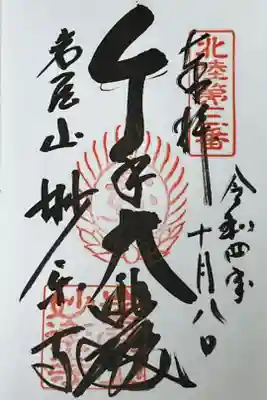 北陸第三番
奉拝
令和四年
十月八日
千手大悲殿
岩屋山
妙楽寺